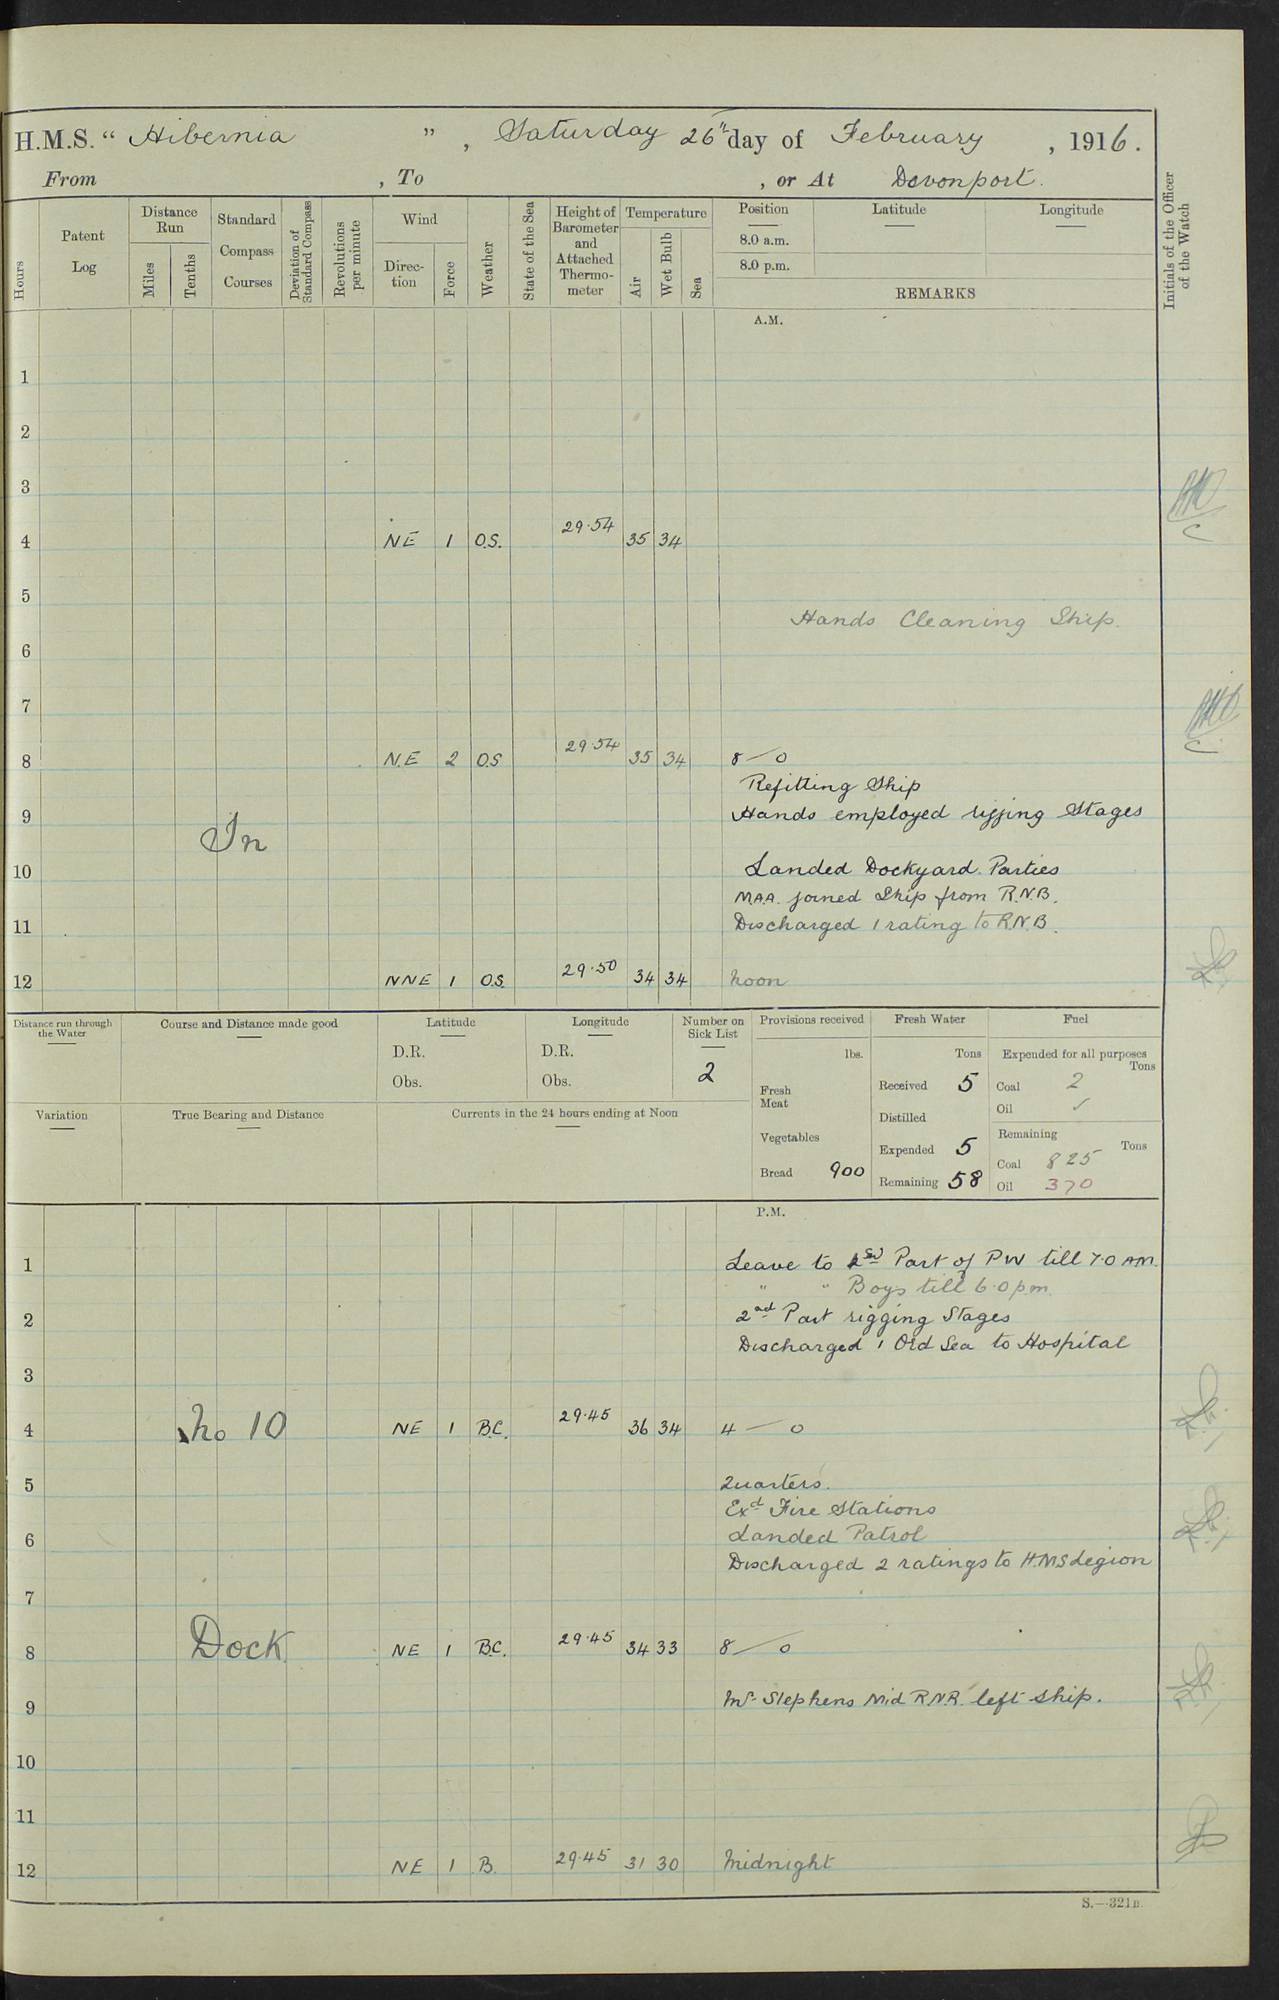 H.M.S. “ Hibernia ”, Saturday 26th day of February, 1916.
From , To , or At Devonport.
Hours
Patent Log
Distance Run
Miles
Tenths
Standard Compass Courses
Deviation of Standard Compass
Revolutions per minute
Wind
Direction
Force
Weather
State of the Sea
Height of Barometer and Attached Thermometer
Temperature
Air
Wet Bulb
Sea
Position
Latitude
Longitude
8.0 a.m.
8.0 p.m.
REMARKS
Initials of the Officer of the Watch
A.M.
1
2
3
4 NE 1 O.S. 29.54 35 34
5
Hands Cleaning Ship.
6
7
8 N.E 2 O.S 29.54 35 34 8 — 0
Refitting Ship
9 Hands employed rigging Stages
In
10 Landed Dockyard Parties
M.A.A. joined Ship from R.N.B.
11 Discharged 1 rating to R.N.B.
12 NNE 1 O.S. 29.50 34 34 Noon
Distance run through the Water
Course and Distance made good
Latitude
D.R.
Obs.
Longitude
D.R.
Obs.
Number on Sick List
2
Provisions received
lbs.
Fresh Meat
Vegetables
Bread 900
Fresh Water
Tons
Received 5
Distilled
Expended 5
Remaining 58
Fuel
Expended for all purposes
Tons
Coal 2
Oil ✓
Remaining
Tons
Coal 825
Oil 370
Variation
True Bearing and Distance
Currents in the 24 hours ending at Noon
P.M.
1 Leave to Part of PW till 7.0 AM.
" " Boys till 6.0 p.m.
2 2nd Part rigging Stages
Discharged 1 Ord Sea to Hospital
3
No 10
4 NE 1 B.C. 29.45 36 34 4 — 0
5 Quarters.
Exd Fire Stations
6 Landed Patrol
Discharged 2 ratings to H.M.S Legion
7
Dock
8 NE 1 B.C. 29.45 34 33 8 — 0
9 Mr Stephens Mid R.N.R. left ship.
10
11
12 NE 1 B. 29.45 31 30 Midnight
S.—321B.